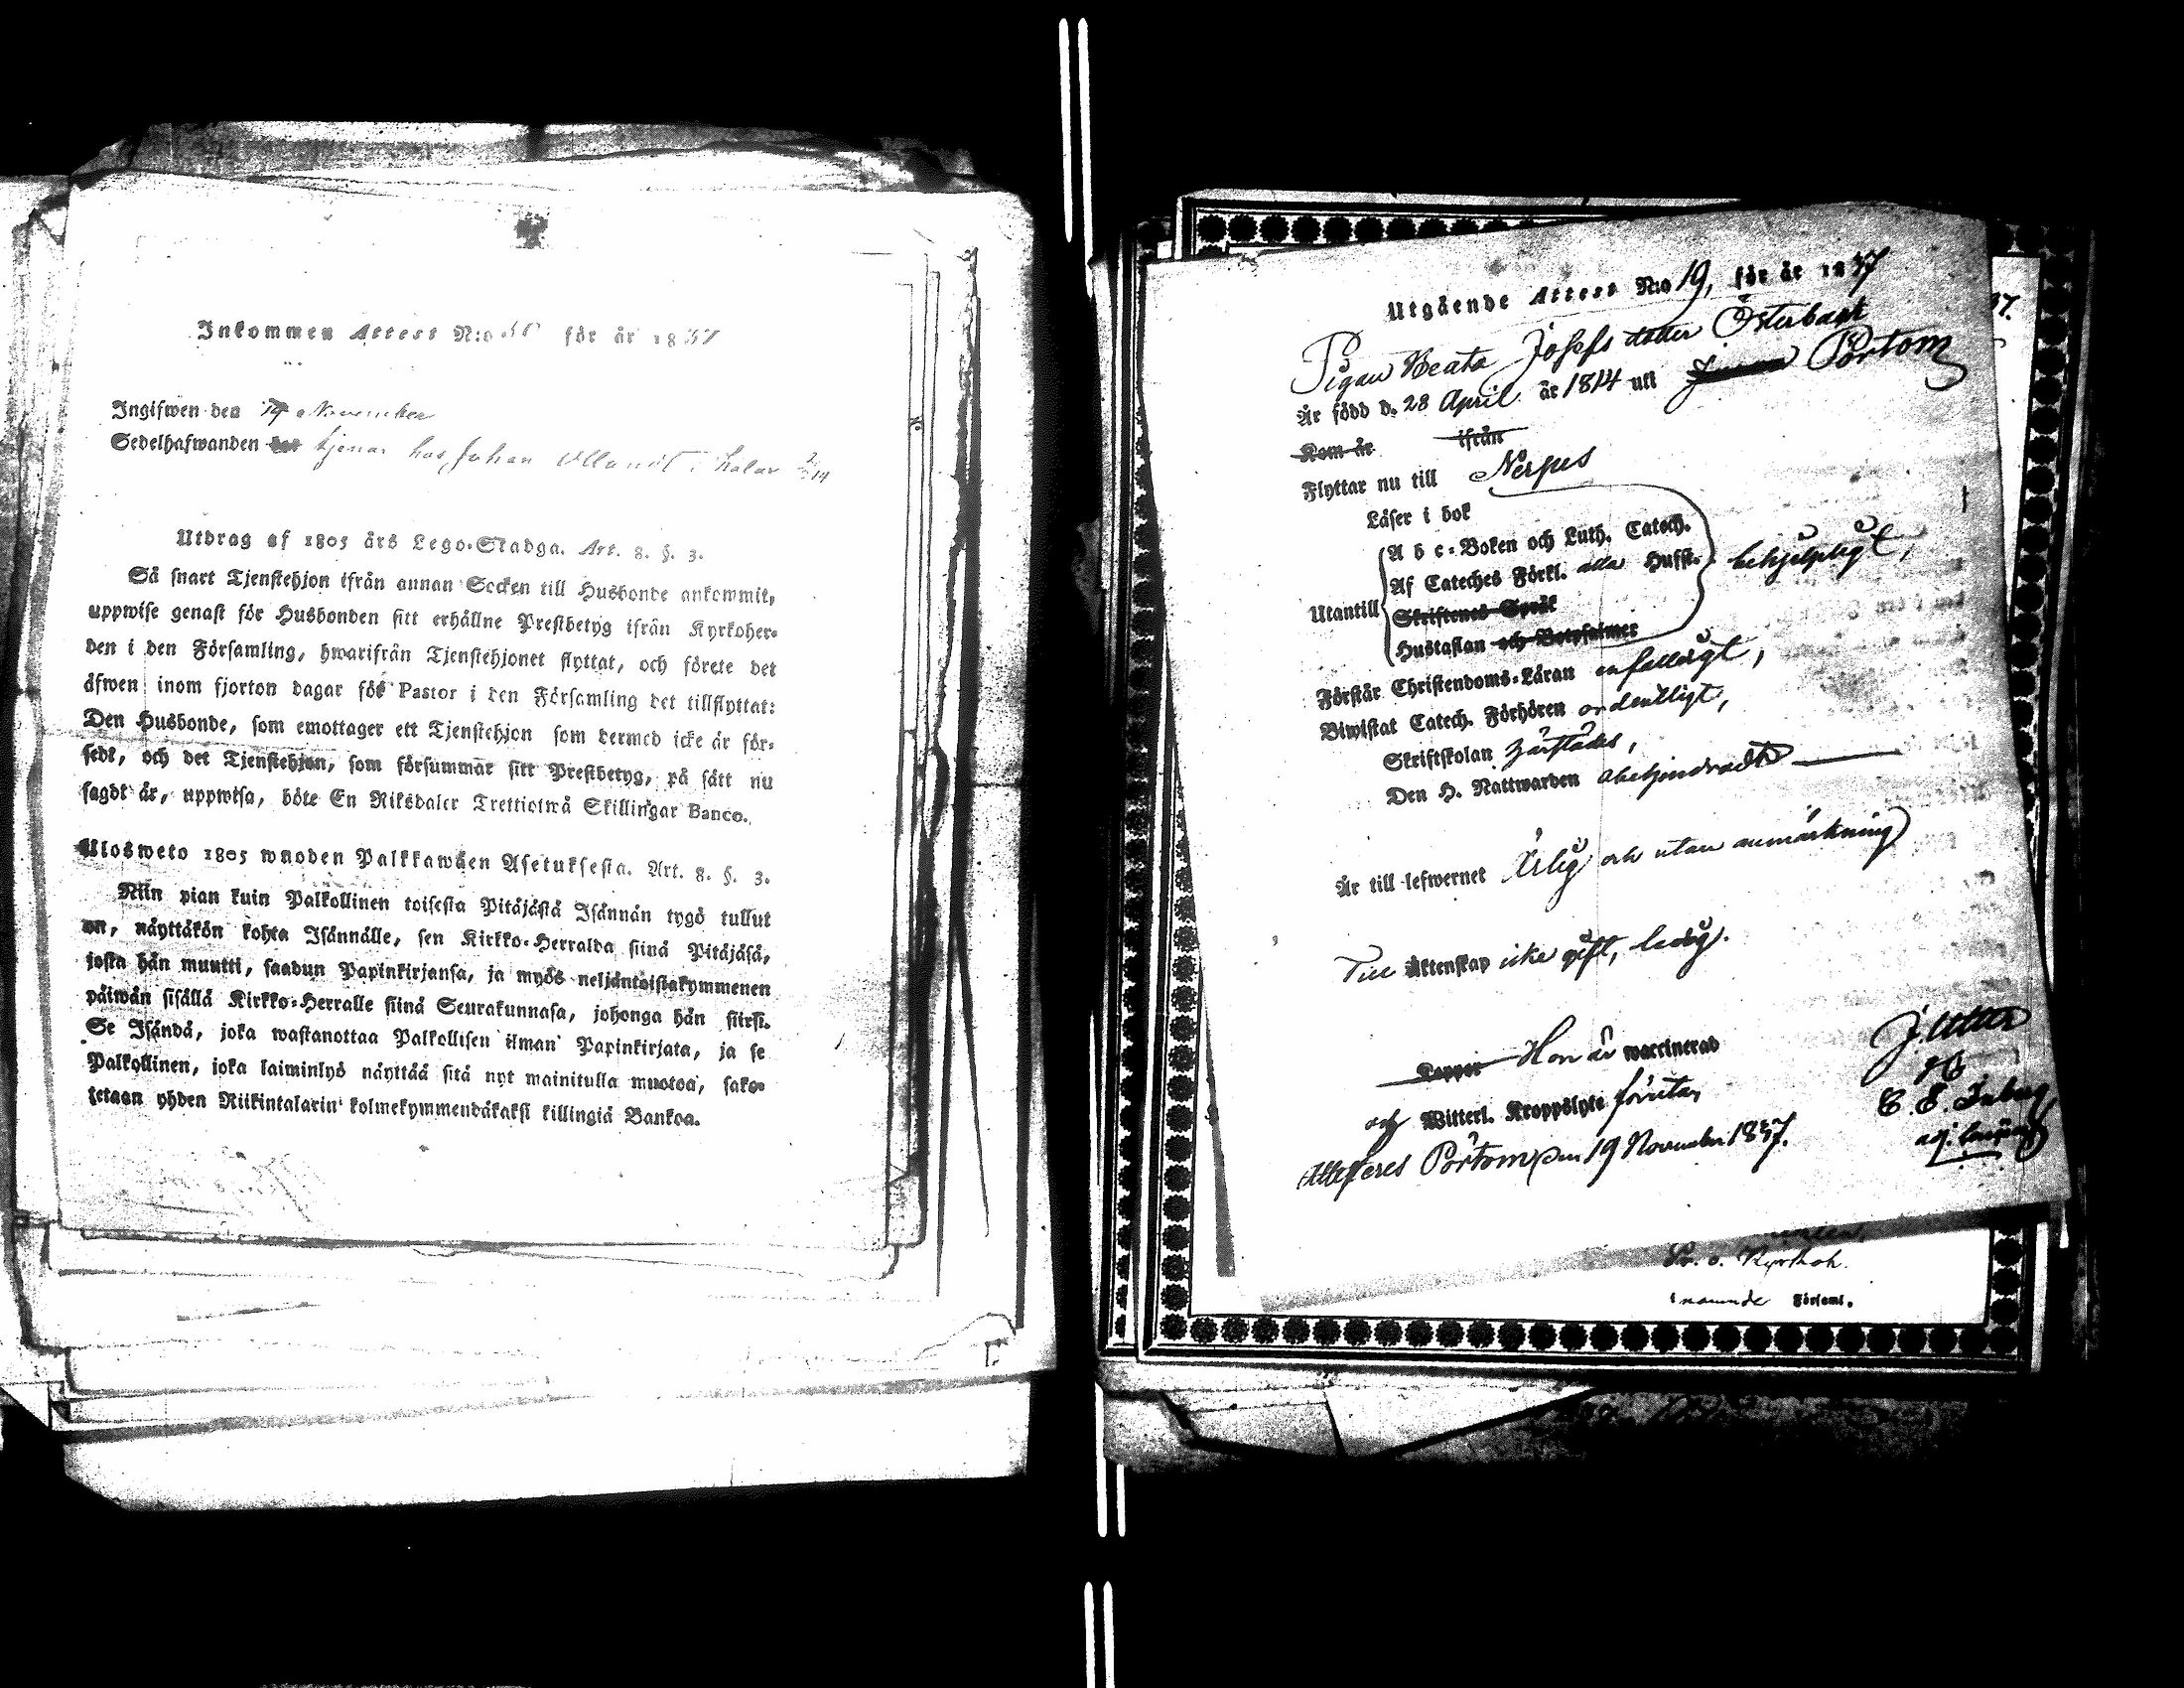 Inkommen Attest N:o för år 1837
Ingifwen den November
Sedelhafwanden tjenar hos Johan i
Utdrag af 1805 års Lego-Stadga. Art. 8. §. 3.
Så snart Tjenstehjon ifrån annan Socken till Husbonde ankommit,
uppwise genast för Husbonden sitt erhållne Prestbetyg ifrån Kyrkoher-
den i den Församling, hwarifrån Tjenstehjonet flyttat, och förete det
äfwen inom fjorton dagar för Pastor i den Församling det tillflyttat:
Den Husbonde, som emottager ett Tjenstehjon som dermed icke är för-
sedt, och det Tjenstehjon, som försummar sitt Prestbetyg, på sätt nu
sagdt är, uppwisa, böte En Riksdaler Trettiotwå Skillingar Banco.
Ulosweto 1805 wuoden Palkkawäen Asetuksesta. Art. 8. §. 3.
Niin pian kuin Palkollinen toisesta Pitäjästä Isännän tygö tullut
on, näyttäkön kohta Isännälle, sen Kirkko-Herralda siinä Pitäjäsä,
josta hän muutti, saadun Papinkirjansa, ja myös neljäntoistakymmenen
päiwän sisällä Kirkko-Herralle siinä Seurakunnasa, johonga hän siirsi.
Se Isändä, joka wastanottaa Palkollisen ilman Papinkirjata, ja se
Palkollinen, joka laiminlyö näyttää sitä nyt mainitulla muotoa, sako-
tetaan yhden Riikintalarin kolmekymmendäkaksi killingiä Bankoa.
Utgående Attest N:o 19, för år 1837
Pigan Beata Josefs dotter Österback
Är född d. 28 April år 1814 uti Pörtom
Kom år ifrån
Flyttar nu till Nerpes
Läser i bok
A b c-Boken och Luth. Catech.
Af Cateches Förkl. alla Hufst. behjelpligt,
Utantill Skriftenes Språk
Hustaflan och Botpsalmer
Förstår Christendoms-Läran enfalligt,
Biwistat Catech. Förhören ordentligt,
Skriftskolan härstädes,
Den H. Nattwarden obehindradt
Är till lefwernet Ärlig och utan anmärkning
Till Äktenskap icke gift, ledig.
Koppor Hon är waccinerad
och Witterl. Kroppslyte förutan
Attesteres Pörtom den 19 November 1837.
C. E.
Pr. o. Kyrkoh.
i nämnde Församl.